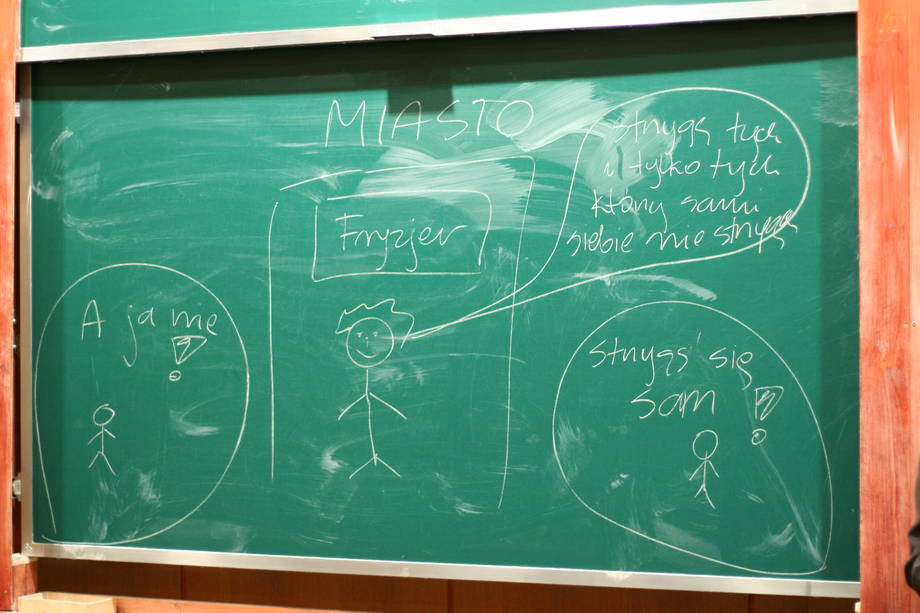 MIASTO
Fryzjer
strzygę tych
i tylko tych
którzy sami
siebie nie strzygą
A ja nie
!
strzygę się
sam
!